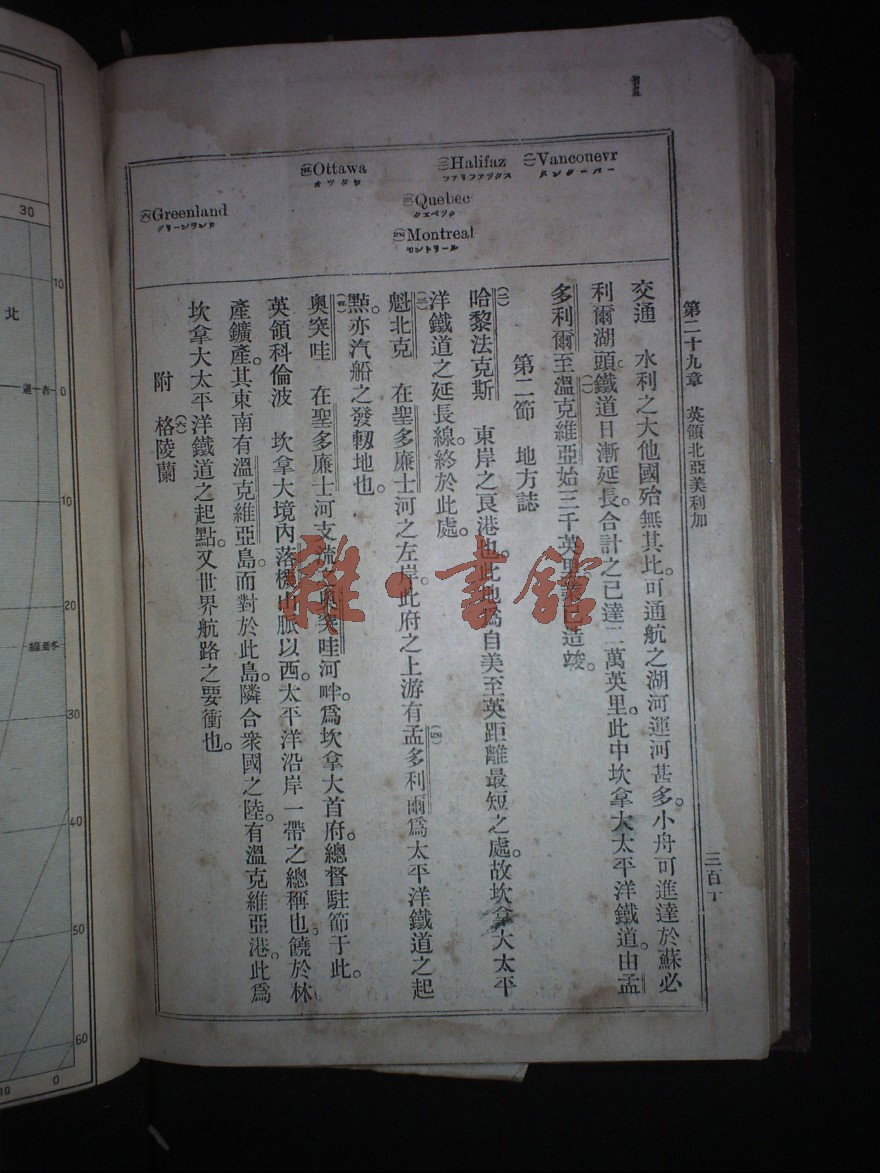 第二十九章 英領北亞美利加
(一)Vancouevr
(二)Halifaz
(三)Quebec
(四)Montreal
モントリール
Ottawa
オツタワ
(六)Greenland
交通 水利之大他國殆無其比。可通航之湖河運河甚多。小舟可進達於蘇必
利爾湖頭。鐵道日漸延長。合計之已達二萬英里。此中坎拿大太平洋鐵道。由孟
多利爾至溫克維亞(一)殆三千英里。造竣。
第二節 地方誌
哈黎法克斯(二) 東岸之良港也。此地爲自美至英距離最短之處。故坎拿大太平
洋鐵道之延長線。終於此處。
魁北克(三) 在聖多廉士河之左岸。此府之上游有孟多利爾(四)爲太平洋鐵道之起
點。亦汽船之發軔地也。
奧突哇(五) 在聖多廉士河支流奧突哇河畔。爲坎拿大首府。總督駐節于此。
英領科倫波 坎拿大境內落機山脈以西。太平洋沿岸一帶之總稱也。饒於林
產鑛產。其東南有溫克維亞島。而對於此島。隣合衆國之陸。有溫克維亞港。此爲
坎拿大太平洋鐵道之起點。又世界航路之要衝也。
附 格陵蘭(六)
雜·書館
30
北
10
赤道
0
10
20
冬至線
30
40
50
60
10
0